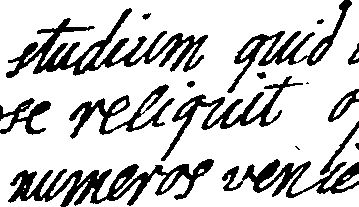 studium quid
se reliquit
numeros venie